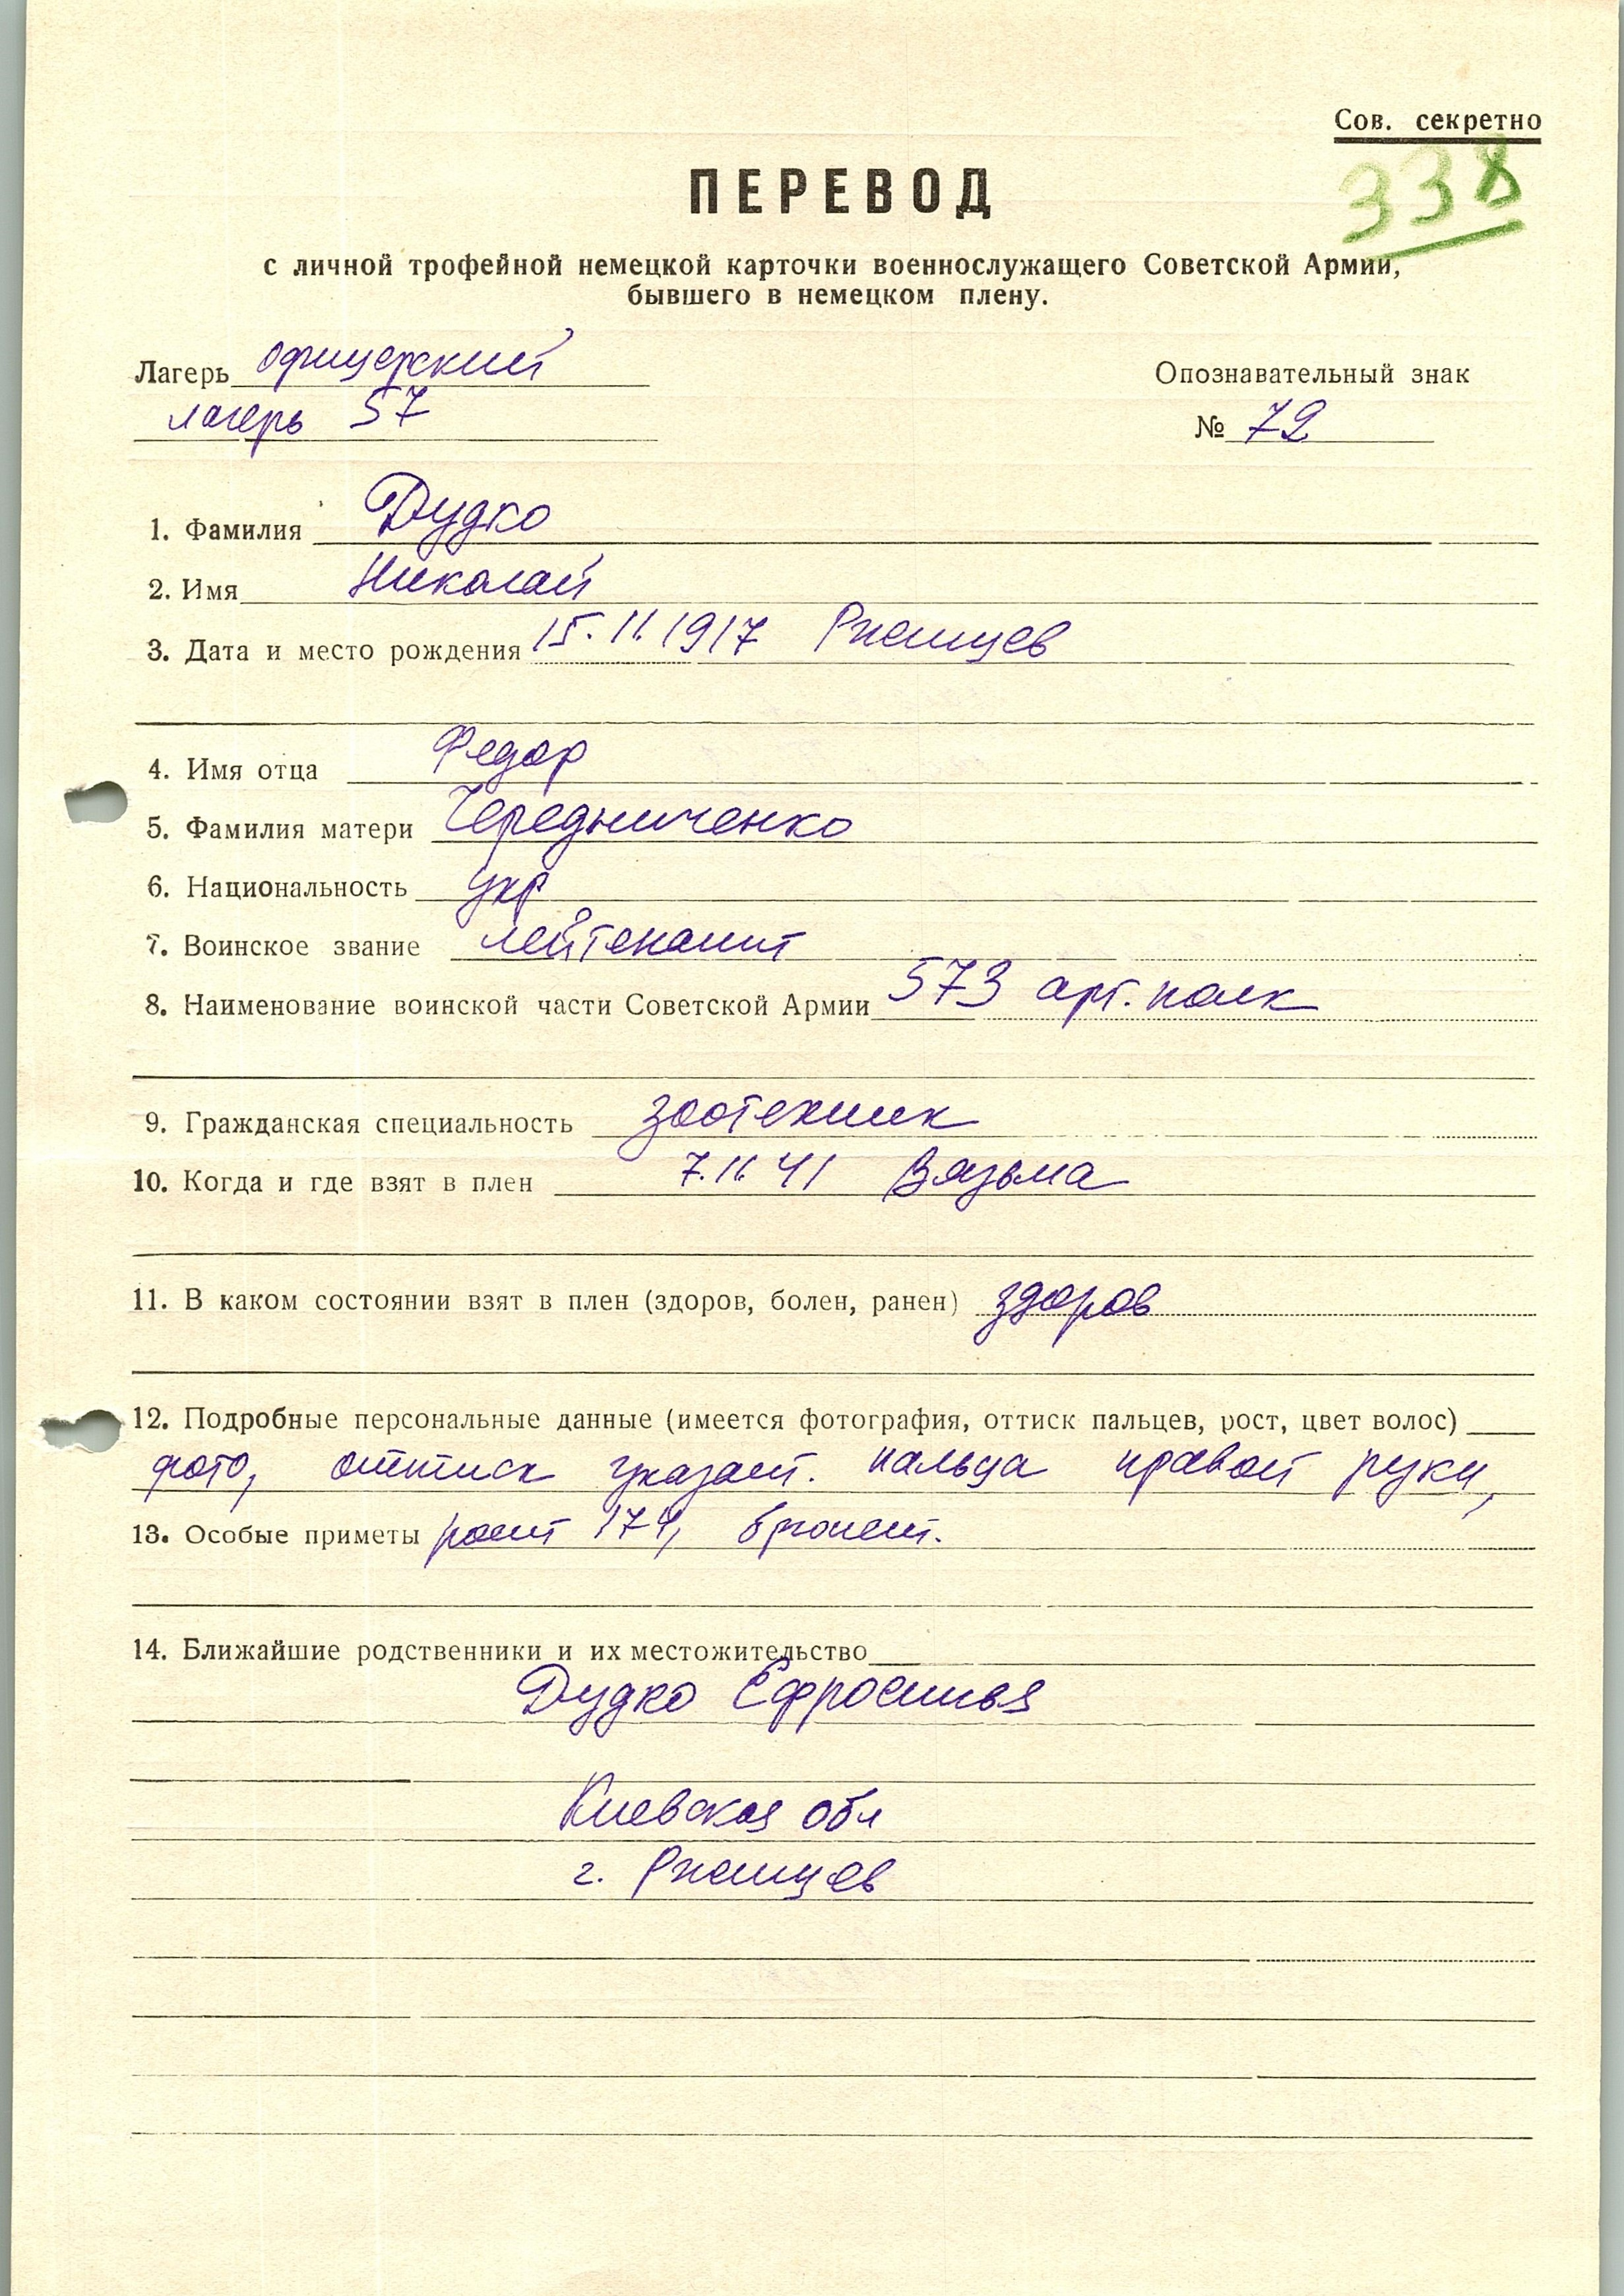 Сов. секретно
338
ПЕРЕВОД
с личной трофейной немецкой карточки военнослужащего Советской Армии,
бывшего в немецком плену.
Лагерь офицерский
лагерь 57
Опознавательный знак
№ 72
1. Фамилия Дудко
2. Имя Николай
3. Дата и место рождения 15.11.1917 Ржищев
4. Имя отца Федор
5. Фамилия матери Чередниченко
6. Национальность укр
7. Воинское звание лейтенант
8. Наименование воинской части Советской Армии 573 арт. полк
9. Гражданская специальность зоотехник
10. Когда и где взят в плен 7.11.41 Вязьма
11. В каком состоянии взят в плен (здоров, болен, ранен) здоров
12. Подробные персональные данные (имеется фотография, оттиск пальцев, рост, цвет волос)
фото, оттиск указат. пальца правой руки,
13. Особые приметы рост 174, брюнет.
14. Ближайшие родственники и их местожительство
Дудко Ефросинья
Киевская обл
г. Ржищев